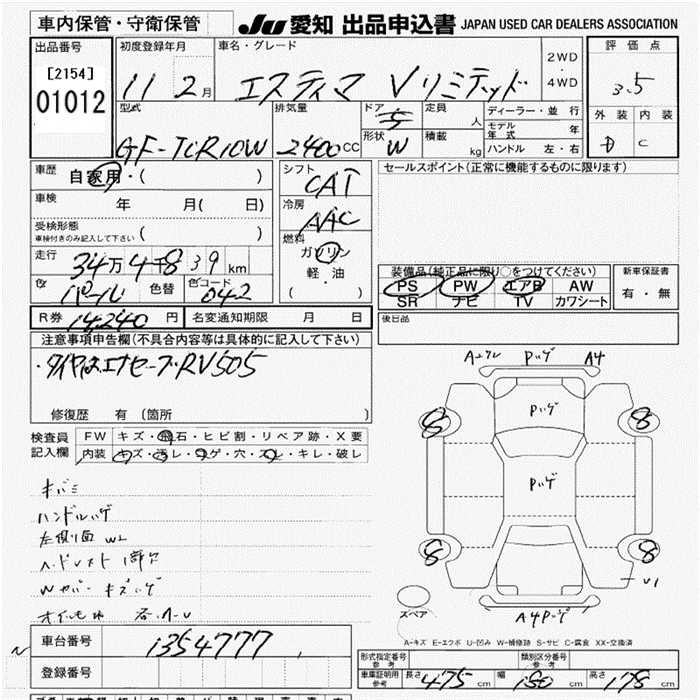 車内保管・守衛保管 JU 愛知 出品申込書 JAPAN USED CAR DEALERS ASSOCIATION
出品番号 初度登録年月 車名・グレード 2WD・4WD 評価点
[2154] 01012 11 2月 エスティマ Vリミテッド 3.5
型式 排気量 ドア 定員 人 ディーラー・並行 外装 内装
GF-TCR10W 2400cc 5 形状 W 積載 kg モデル年式 年 ハンドル 左・右 D C
車歴 自家用・( ) シフト CAT セールスポイント(正常に機能するものに限ります)
車検 年 月( 日) 冷房 AAC
受検形態 車検付きのみ記入して下さい 燃料 ガソリン
走行 34万4千839km 軽・油 ( ) 装備品(純正品に限り○をつけてください) 新車保証書
色 パール 色替 色コード 042 PS PW エアB AW 有・無
SR ナビ TV カワシート
R券 14240円 名変通知期限 月 日 後日品
注意事項申告欄(不具合内容等は具体的に記入して下さい)
・タイヤはエナセーブRV505
修復歴 有(箇所 )
検査員記入欄 FW キズ・飛石・ヒビ割・リペア跡・X要
内装 キズ・汚レ・コゲ・穴・スレ・キレ・破レ
キバミ
ハンドルハゲ
左側1面 W2
Wカバー キズハゲ
Pハゲ A4
Pハゲ
Pハゲ
S S
S S
U1
A4Pハゲ
スペア
A-キズ E-エクボ U-凹み W-補修跡 S-サビ C-腐食 XX-交換済
車台番号 1354777
登録番号
形式指定番号 参考 類別区分番号 参考
車庫証明用 参考 長さ 475cm 幅 180cm 高さ 178cm